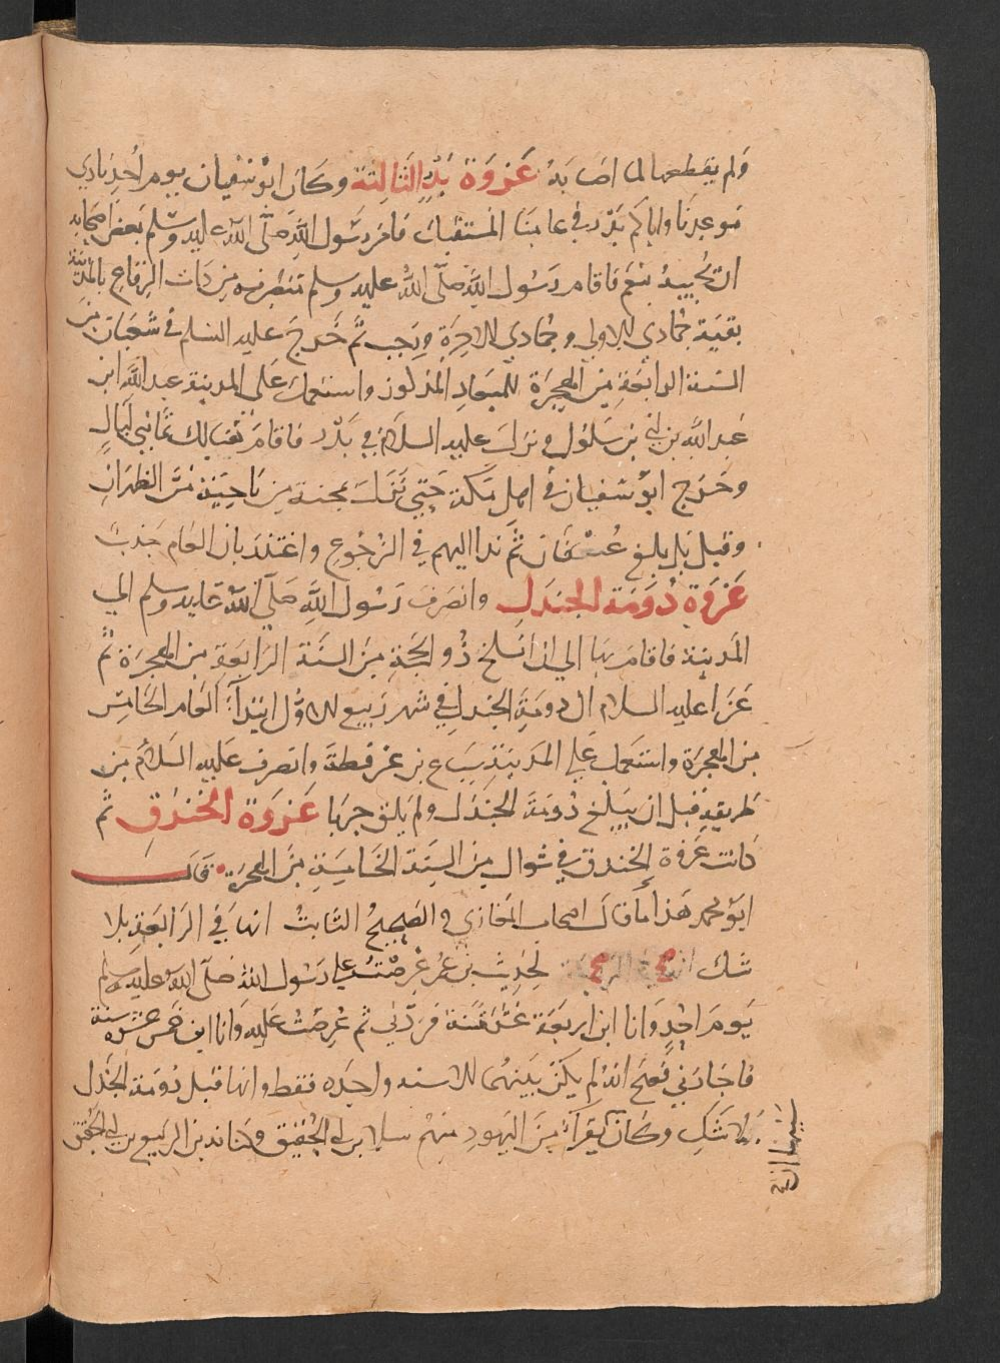 ولم يقطعها لما اصابه غزوة بدر الثالثة وكان ابو سفيان يوم احد نادي
موعدنا واياكم بدر في عامنا المستقبل فامر رسول الله صلى الله عليه وسلم بعض اصحابه
ان يجيبه بنعم فاقام رسول الله صلى الله عليه وسلم منصرفه من ذات الرقاع بالمدينة
بقية جمادي الاولي وجمادي الاخرة ورجب ثم خرج عليه السلم في شعبان من
السنة الرابعة من الهجرة للميعاد المذكور واستعمل على المدينة عبد الله ابن
عبد الله بن ابي بن سلول ونزل عليه السلام في بدر فاقام هنالك ثماني ليال
وخرج ابو سفيان في اهل مكة حتي نزل مجنة من ناحية مر الظهران
وقيل بل بلغ عسفان ثم بدا اليهم في الرجوع واعتذر بان العام جدب
غزوة دومة الجندل وانصرف رسول الله صلى الله عليه وسلم الي
المدينة فاقام بها الي ان انسلخ ذو الحجة من السنة الرابعة من الهجرة ثم
غزا عليه السلام الي دومة الجندل في شهر ربيع الاول ابتدآء العام الخامس
من الهجرة واستعمل علي المدينة سباع بن عرفطة وانصرف عليه السلام من
طريقه قبل ان يبلغ دومة الجندل ولم يلق حربا غزوة الخندق ثم
كانت غزوة الخندق في شوال من السنة الخامسة من الهجرة قال
ابو محمد هذا ما قال اصحاب المغازي والصحيح الثابت انها في الرابعة بلا
شك لحديث بن عمر عرضت علي رسول الله صلى الله عليه وسلم
يوم احد وانا ابن اربعة عشر سنة فردني ثم عرضت عليه وانا ابن خمس عشرة سنة
فاجازني فصح انه لم يكن بينهما الا سنه واحده فقط وانها قبل دومة الجندل
بلا شك وكان نفرا من اليهود منهم سلام بن ابي الحقيق وكنانه بن الربيع بن ابي الحقيق